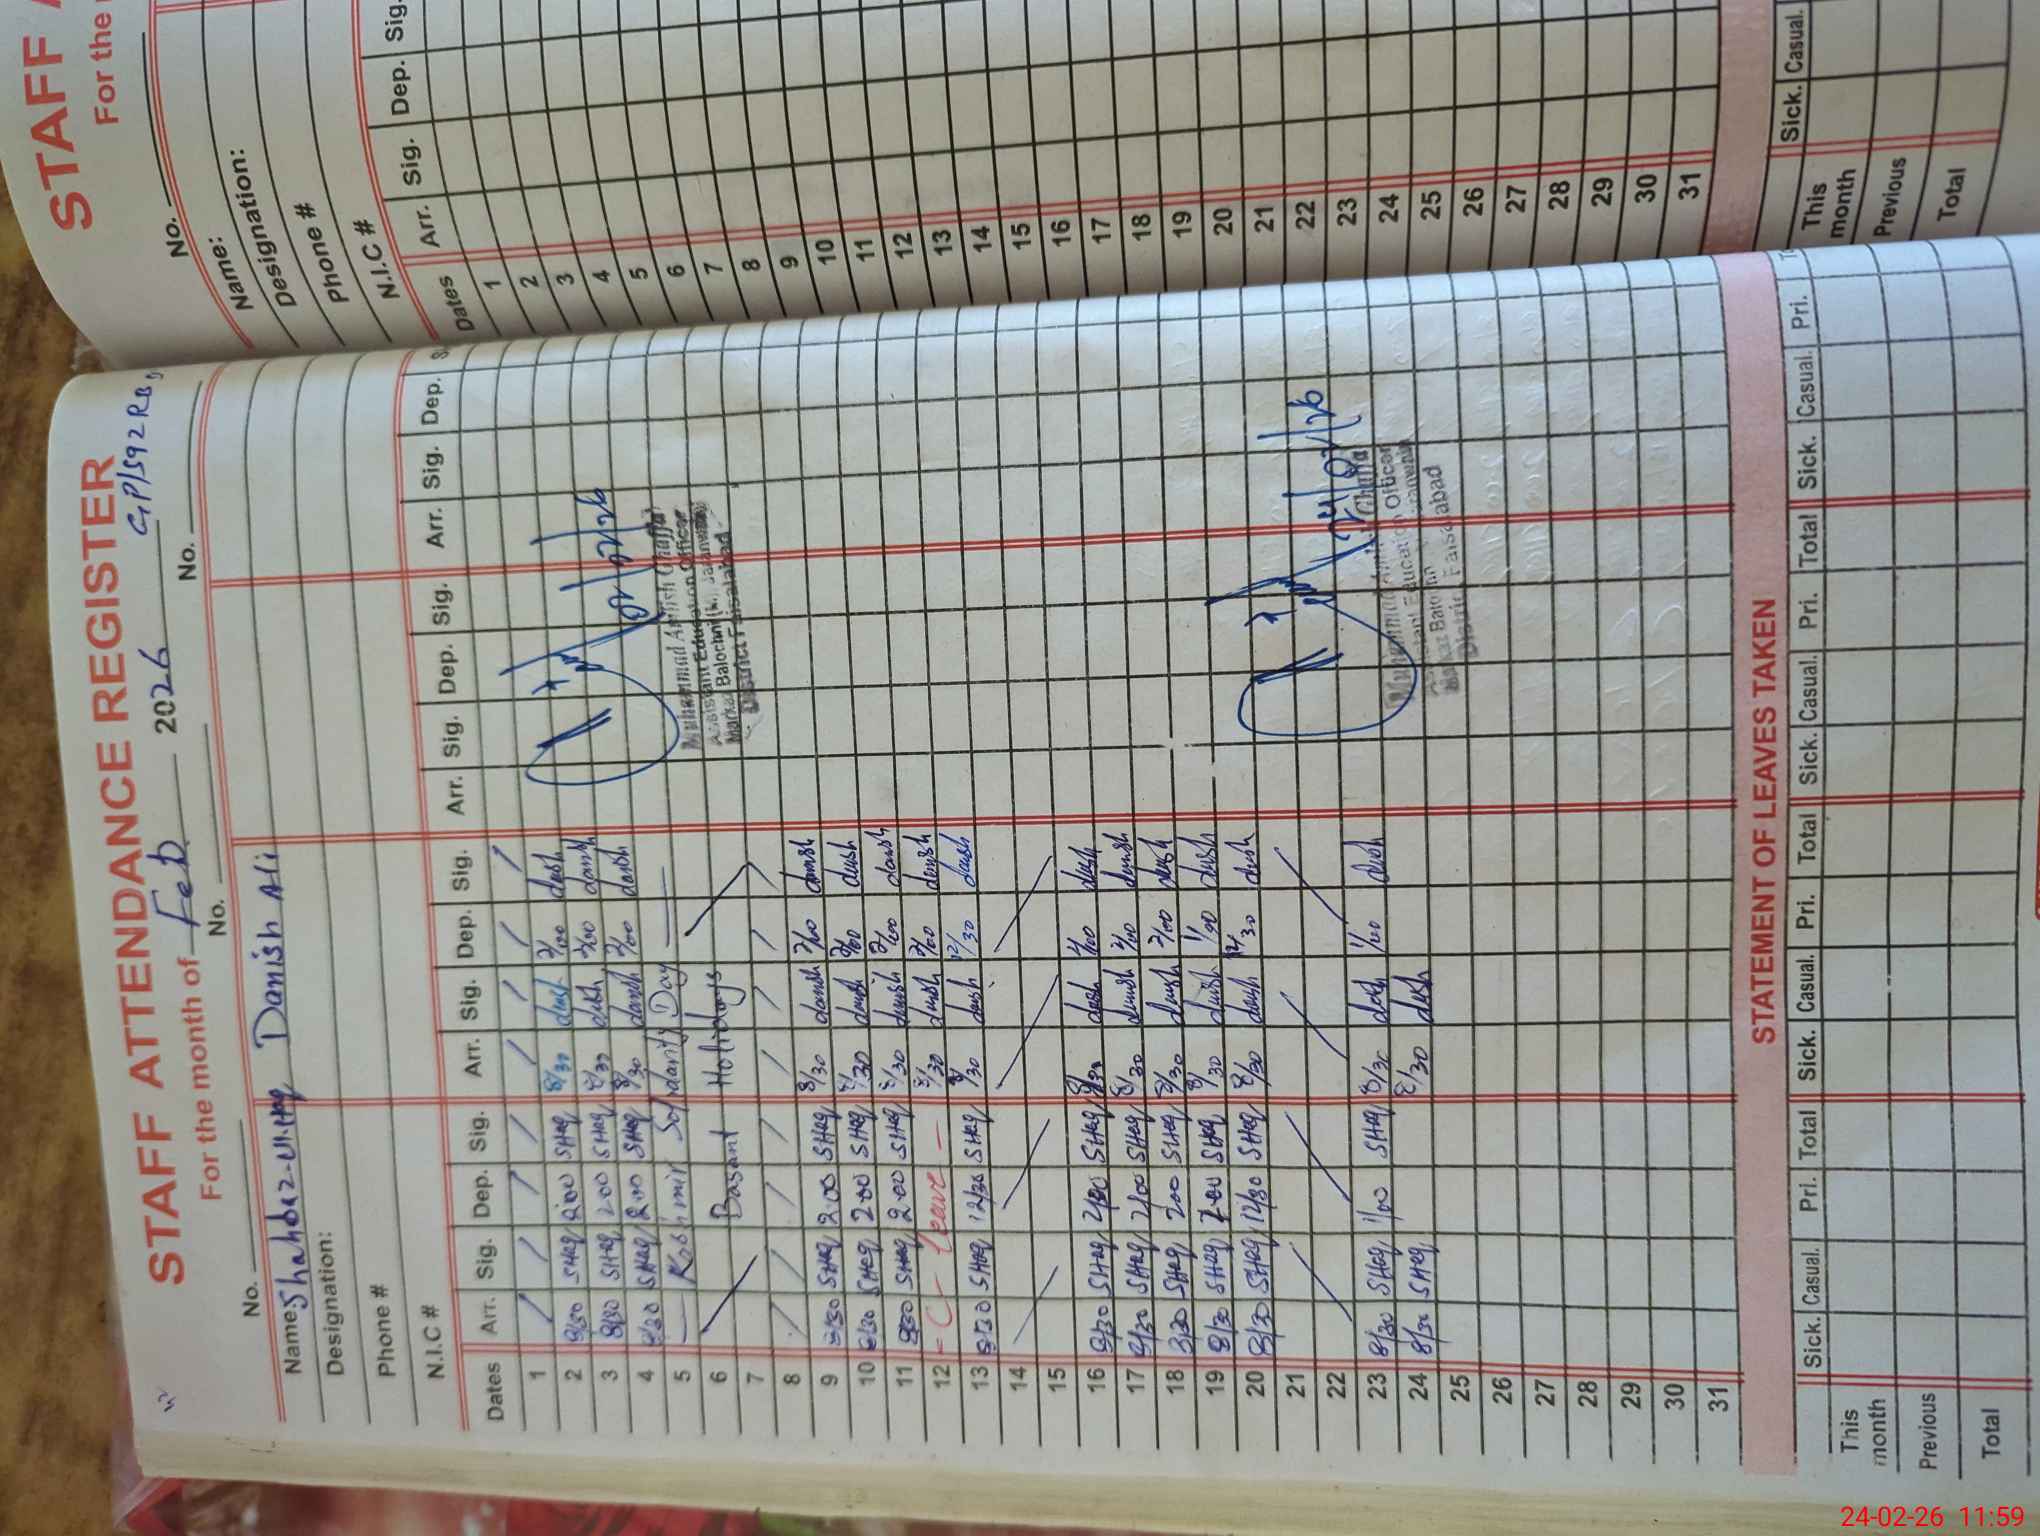 STAFF ATTENDANCE REGISTER
For the month of Feb 2026 GPS 592 RB
No. No. No.
Name Shahbaz-Ul-Haq Danish Ali
Designation:
Phone #
N.I.C #
Dates Arr. Sig. Dep. Sig. Arr. Sig. Dep. Sig. Arr. Sig. Dep. Sig. Arr. Sig. Dep.
1
2 8/30 SHaq 2:00 SHaq 8/30 danish 2/00 danish
3 8/30 SHaq 2:00 SHaq 8/30 danish 2/00 danish
4 8/30 SHaq 2:00 SHaq 8/30 danish 2/00 danish
5 Kashmir Solidarity Day
6 Basant Holidays
7
8
9 8/30 SHaq 2:00 SHaq 8/30 danish 2/00 danish
10 8/30 SHaq 2:00 SHaq 8/30 danish 2/00 danish
11 8:30 SHaq 2:00 SHaq 8/30 danish 2/00 danish
12 - C - leave - 8/30 danish 2/00 danish
13 8:30 SHaq 12/30 SHaq 8/30 danish 12/30 danish
14
15
16 8/30 SHaq 2/00 SHaq 8/30 danish 1/00 danish
17 8/30 SHaq 2/00 SHaq 8/30 danish 2/00 danish
18 8:30 SHaq 2:00 SHaq 8/30 danish 2/00 danish
19 8/30 SHaq 1:00 SHaq 8/30 danish 1/00 danish
20 8/30 SHaq 12/30 SHaq 8/30 danish 12/30 danish
21
22
23 8/30 SHaq 1/00 SHaq 8/30 danish 1/00 danish
24 8/30 SHaq 8/30 danish
25
26
27
28
29
30
31
Muhammad Amish Ghaffar
Assistant Education Officer
Markaz Balochni (M) Jaranwala
District Faisalabad
24/02/26
Assistant Education Officer
District Faisalabad
STATEMENT OF LEAVES TAKEN
Sick. Casual. Pri. Total Sick. Casual. Pri. Total Sick. Casual. Pri. Total Sick. Casual. Pri.
This month
Previous
Total
STAFF A
For the
No.
Name:
Designation:
Phone #
N.I.C #
Dates Arr. Sig. Dep. Sig.
1
2
3
4
5
6
7
8
9
10
11
12
13
14
15
16
17
18
19
20
21
22
23
24
25
26
27
28
29
30
31
Sick. Casual.
This month
Previous
Total
24-02-26 11:59